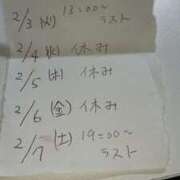 2/3 (火) 13:00~
ラスト
2/4 (水) 休み
2/5 (木) 休み
2/6 (金) 休み
2/7 (土) 19:00~
ラスト